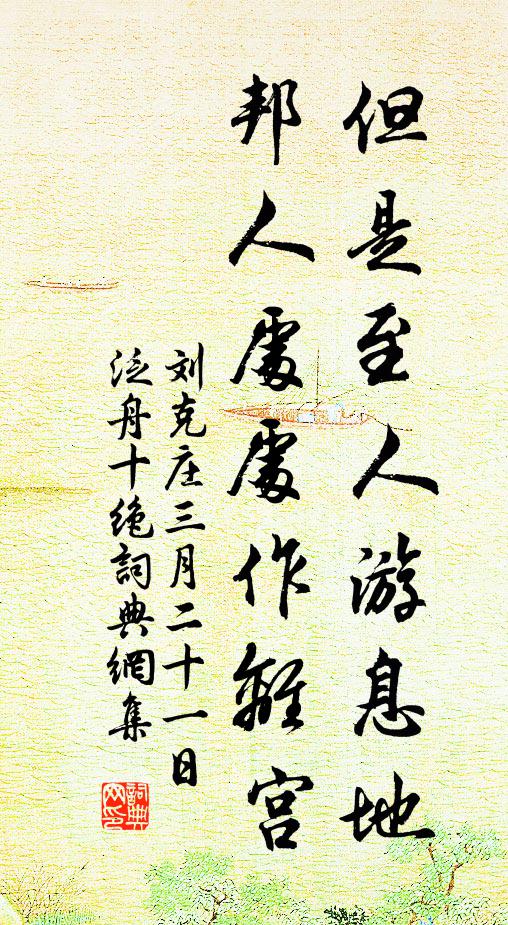 但是至人游息地
邦人處處作離宮
刘克庄三月二十一日
泛舟十绝詞典網集
詞典
网印